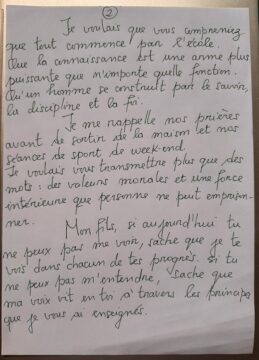 2
Je voulais que vous compreniez
que tout commence par l'école.
Que la connaissance est une arme plus
puissante que n'importe quelle fonction.
Qu'un homme se construit par le savoir,
la discipline et la foi.
Je me rappelle nos prières
avant de sortir de la maison et nos
séances de sport de week-end.
Je voulais vous transmettre plus que des
mots : des valeurs morales et une force
intérieure que personne ne peut emprison-
ner.
Mon fils, si aujourd'hui tu
ne peux pas me voir, sache que je te
vois dans chacun de tes progrès. Si tu
ne peux pas m'entendre, sache que
ma voix vit en toi à travers les principes
que je vous ai enseignés.